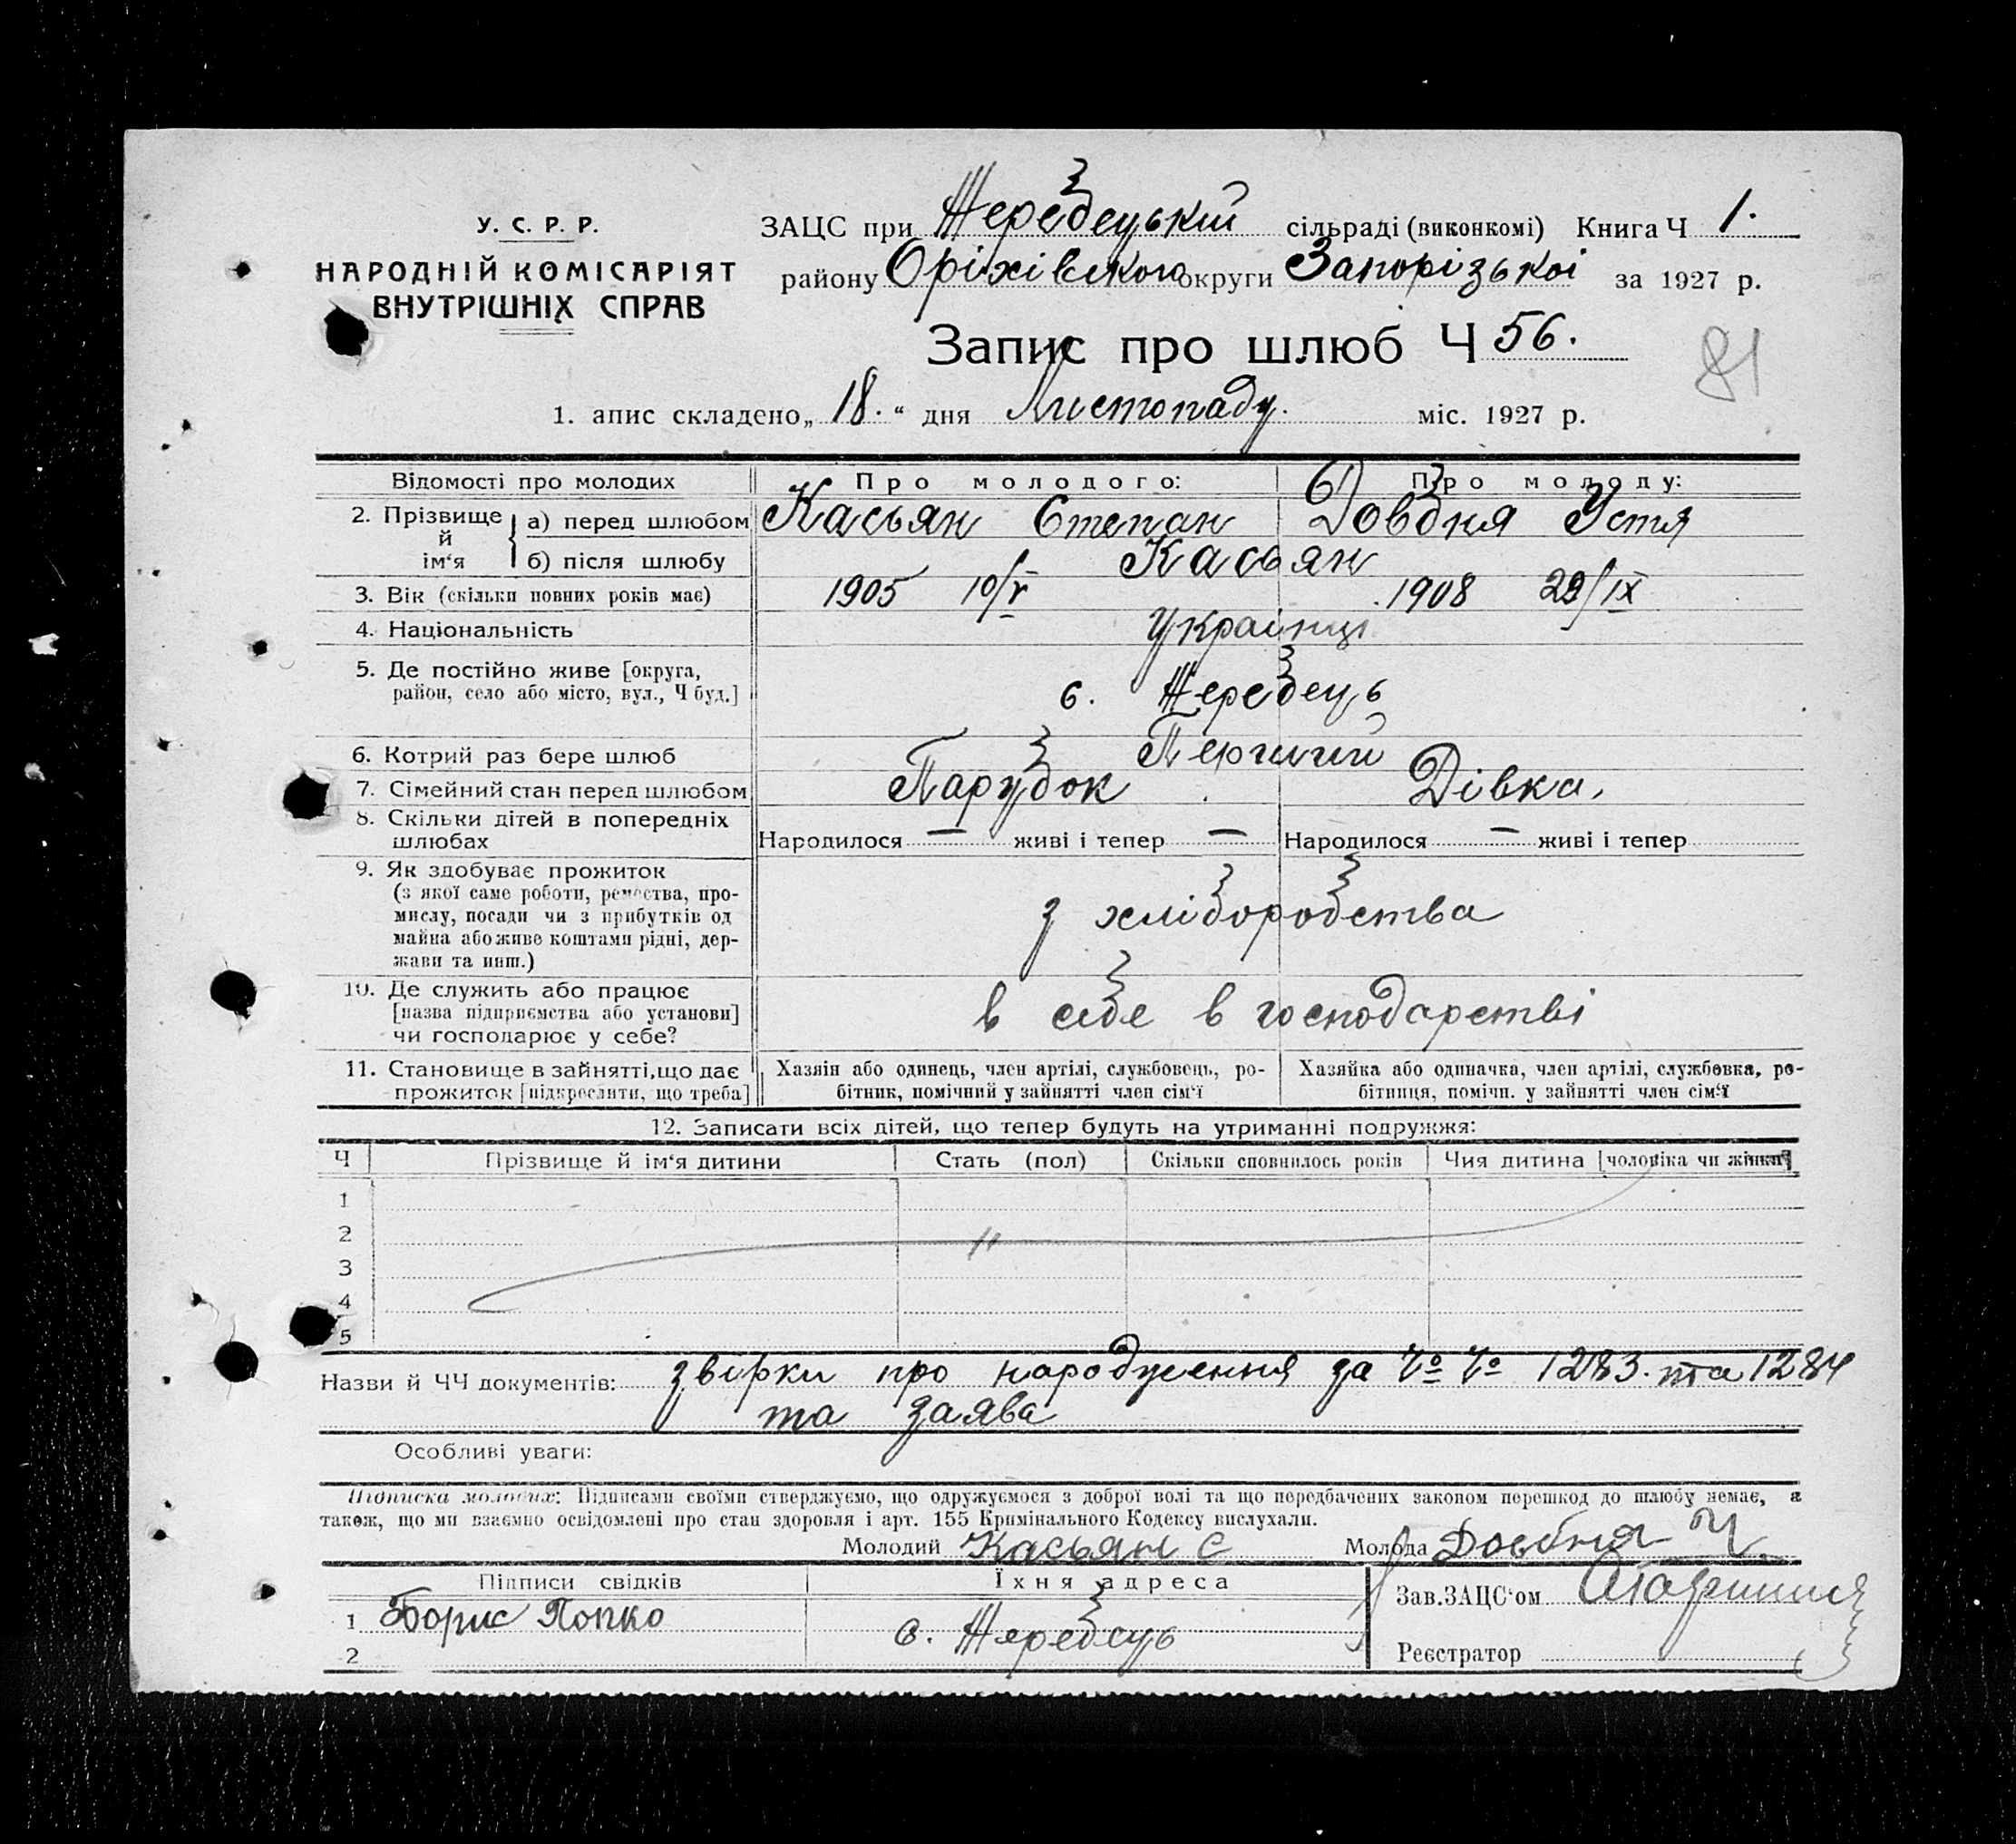 У. С. Р. Р.
НАРОДНІЙ КОМІСАРІЯТ
ВНУТРІШНІХ СПРАВ
ЗАЦС при Жеребецькій сільраді (виконкомі) Книга Ч 1.
району Оріхівского округи Запорізькоі за 1927 р.
Запис про шлюб Ч 56.
81
1. апис складено „18.“ дня Листопаду. міс. 1927 р.
Відомості про молодих Про молодого: Про молоду:
2. Прізвище й ім‘я а) перед шлюбом Касьян Степан Довбня Устя
б) після шлюбу Касьян
3. Вік (скільки повних років має) 1905 10/V 1908 29/IX
4. Національність Украінці
5. Де постійно живе [округа, район, село або місто, вул., Ч буд.] с. Жеребець
6. Котрий раз бере шлюб Перший
7. Сімейний стан перед шлюбом Парубок Дівка.
8. Скільки дітей в попередніх шлюбах Народилося — живі і тепер — Народилося — живі і тепер
9. Як здобуває прожиток
(з якої саме роботи, ремества, про-
мислу, посади чи з прибутків од
майна або живе коштами рідні, дер-
жави та инш.)
з хліборобства
10. Де служить або працює
[назва підприємства або установи]
чи господарює у себе?
в себе в господарстві
11. Становище в зайнятті, що дає
прожиток [підкреслити, що треба]
Хазяін або одинець, член артілі, службовець, ро-
бітник, помічний у зайнятті член сім‘ї
Хазяйка або одиначка, член артілі, службовка, ро-
бітниця, помічн. у зайнятті член сім‘ї
12. Записати всіх дітей, що тепер будуть на утриманні подружжя:
Ч Прізвище й ім‘я дитини Стать (пол) Скільки сповнилось років Чия дитина [чоловіка чи жінки]
1
2
3
4
5
Назви й ЧЧ документів: звірки про народження за Ч⁰ Ч⁰ 1283. та 1284
та заява
Особливі уваги:
Підписка молодих: Підписами своїми стверджуємо, що одружуємося з доброї волі та що передбачених законом перешкод до шлюбу немає, а
також, що ми взаємно освідомлені про стан здоровля і арт. 155 Кримінального Кодексу вислухали.
Молодий Касьян С Молода Довбня У.
Підписи свідків Їхня адреса
Зав. ЗАЦС‘ом
1 Борис Попко с. Жеребець
2
Реєстратор